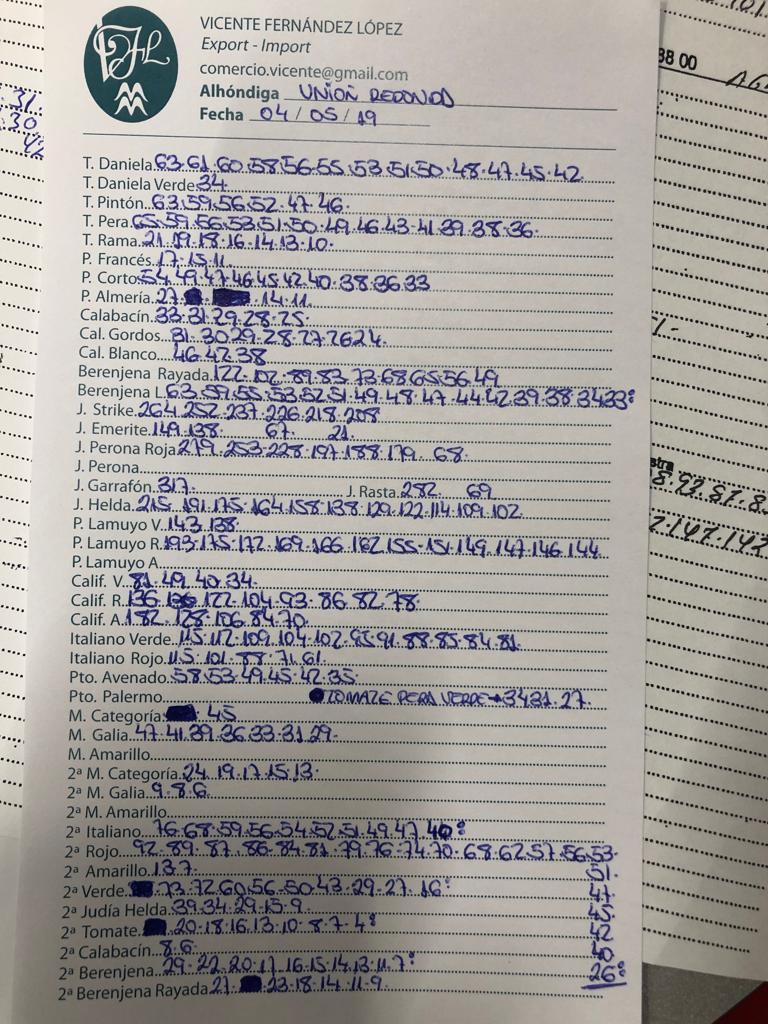 VICENTE FERNÁNDEZ LÓPEZ
Export - Import
comercio.vicente@gmail.com
Alhóndiga UNIÓN REDONDO
Fecha 04/05/19
T. Daniela 63.61.60.58.56.55.53.51.50.48.47.45.42
T. Daniela Verde 34
T. Pintón 63.59.56.52.47.46
T. Pera 65.59.56.53.51.50.49.46.43.41.39.38.36
T. Rama 21.19.18.16.14.13.10
P. Francés 17.15.11
P. Corto 54.49.47.46.45.42.40.38.36.33
P. Almería 27. 14.11
Calabacín 33.31.29.28.25
Cal. Gordos 31.30.29.28.27.26.24
Cal. Blanco 46.42.38
Berenjena Rayada 122.102.89.83.73.68.65.56.49
Berenjena L. 63.59.55.53.52.51.49.48.47.44.42.39.38.34.33
J. Strike 264.252.237.226.218.208
J. Emerite 149.138. 67. 21
J. Perona Roja 279.253.228.197.188.179. 68
J. Perona
J. Garrafón 317 J. Rasta 282. 69
J. Helda 215.191.175.164.158.138.129.122.114.109.102
P. Lamuyo V. 143.138
P. Lamuyo R. 193.175.172.169.166.162.155.151.149.147.146.144
P. Lamuyo A
Calif. V. 81.49.40.34
Calif. R. 136. 122.104.93.86.82.78
Calif. A. 182.128.106.84.70
Italiano Verde 115.112.109.104.102.95.91.88.85.84.81
Italiano Rojo 115.101.88.71.61
Pto. Avenado 58.53.49.45.42.35
Pto. Palermo TOMATE PERA VERDE→34.31.27
M. Categoría 45
M. Galia 47.41.39.36.33.31.29
M. Amarillo
2ª M. Categoría 24.19.17.15.13
2ª M. Galia 9.8.6
2ª M. Amarillo
2ª Italiano 76.68.59.56.54.52.51.49.47.40
2ª Rojo 92.89.87.86.84.81.79.76.74.70.68.62.57.56.53
51
2ª Amarillo 13.7
2ª Verde 73.72.60.56.50.43.29.27.16
47
2ª Judía Helda 39.34.29.15.9
45
2ª Tomate 20.18.16.13.10.8.7.4
42
2ª Calabacín 8.6
40
2ª Berenjena 29.22.20.17.16.15.14.13.11.7
26
2ª Berenjena Rayada 27. 23.18.14.11.9